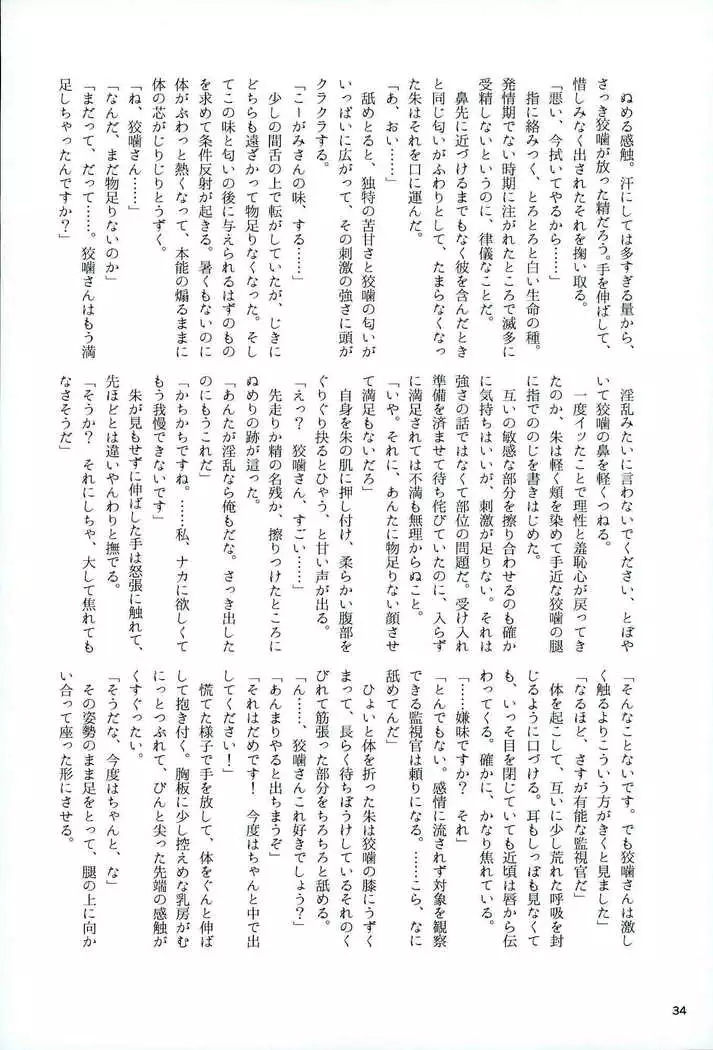 ぬめる感触。汗にしては多すぎる量から、
さっき狡噛が放った精だろう。手を伸ばして、
惜しみなく出されたそれを掬い取る。
「悪い、今拭いてやるから……」
指に絡みつく、とろとろと白い生命の種。
発情期でない時期に注がれたところで滅多に
受精しないというのに、律儀なことだ。
鼻先に近づけるまでもなく彼を含んだとき
と同じ匂いがふわりとして、たまらなくなっ
た朱はそれを口に運んだ。
「あ、おい……」
舐めとると、独特の苦甘さと狡噛の匂いが
いっぱいに広がって、その刺激の強さに頭が
クラクラする。
「こーがみさんの味、する……」
少しの間舌の上で転がしていたが、じきに
どちらも遠ざかって物足りなくなった。そし
てこの味と匂いの後に与えられるはずのもの
を求めて条件反射が起きる。暑くもないのに
体がふわっと熱くなって、本能の煽るままに
体の芯がじりじりとうずく。
「ね、狡噛さん……」
「なんだ、まだ物足りないのか」
「まだって、だって……。狡噛さんはもう満
足しちゃったんですか？」
淫乱みたいに言わないでください、とぼや
いて狡噛の鼻を軽くつねる。
一度イッたことで理性と羞恥心が戻ってき
たのか、朱は軽く頬を染めて手近な狡噛の腿
に指でののじを書きはじめた。
互いの敏感な部分を擦り合わせるのも確か
に気持ちはいいが、刺激が足りない。それは
強さの話ではなくて部位の問題だ。受け入れ
準備を済ませて待ち侘びていたのに、入らず
に満足されては不満も無理からぬこと。
「いや。それに、あんたに物足りない顔させ
て満足もないだろ」
自身を朱の肌に押し付け、柔らかい腹部を
ぐりぐり抉るとひゃう、と甘い声が出る。
「えっ？　狡噛さん、すごい……」
先走りか精の名残か、擦りつけたところに
ぬめりの跡が這った。
「あんたが淫乱なら俺もだな。さっき出した
のにもうこれだ」
「かちかちですね。……私、ナカに欲しくて
もう我慢できないです」
朱が見もせずに伸ばした手は怒張に触れて、
先ほどとは違いやんわりと撫でる。
「そうか？　それにしちゃ、大して焦れても
なさそうだ」
「そんなことないです。でも狡噛さんは激し
く触るよりこういう方がきくと見ました」
「なるほど、さすが有能な監視官だ」
体を起こして、互いに少し荒れた呼吸を封
じるように口づける。耳もしっぽも見なくて
も、いっそ目を閉じていても近頃は唇から伝
わってくる。確かに、かなり焦れている。
「……嫌味ですか？　それ」
「とんでもない。感情に流されず対象を観察
できる監視官は頼りになる。……こら、なに
舐めてんだ」
ひょいと体を折った朱は狡噛の膝にうずく
まって、長らく待ちぼうけしているそれのく
びれて筋張った部分をちろちろと舐める。
「ん……、狡噛さんこれ好きでしょう？」
「あんまりやると出ちまうぞ」
「それはだめです！　今度はちゃんと中で出
してください！」
慌てた様子で手を放して、体をぐんと伸ば
して抱き付く。胸板に少し控えめな乳房がむ
にっとつぶれて、ぴんと尖った先端の感触が
くすぐったい。
「そうだな、今度はちゃんと、な」
その姿勢のまま足をとって、腿の上に向か
い合って座った形にさせる。
34